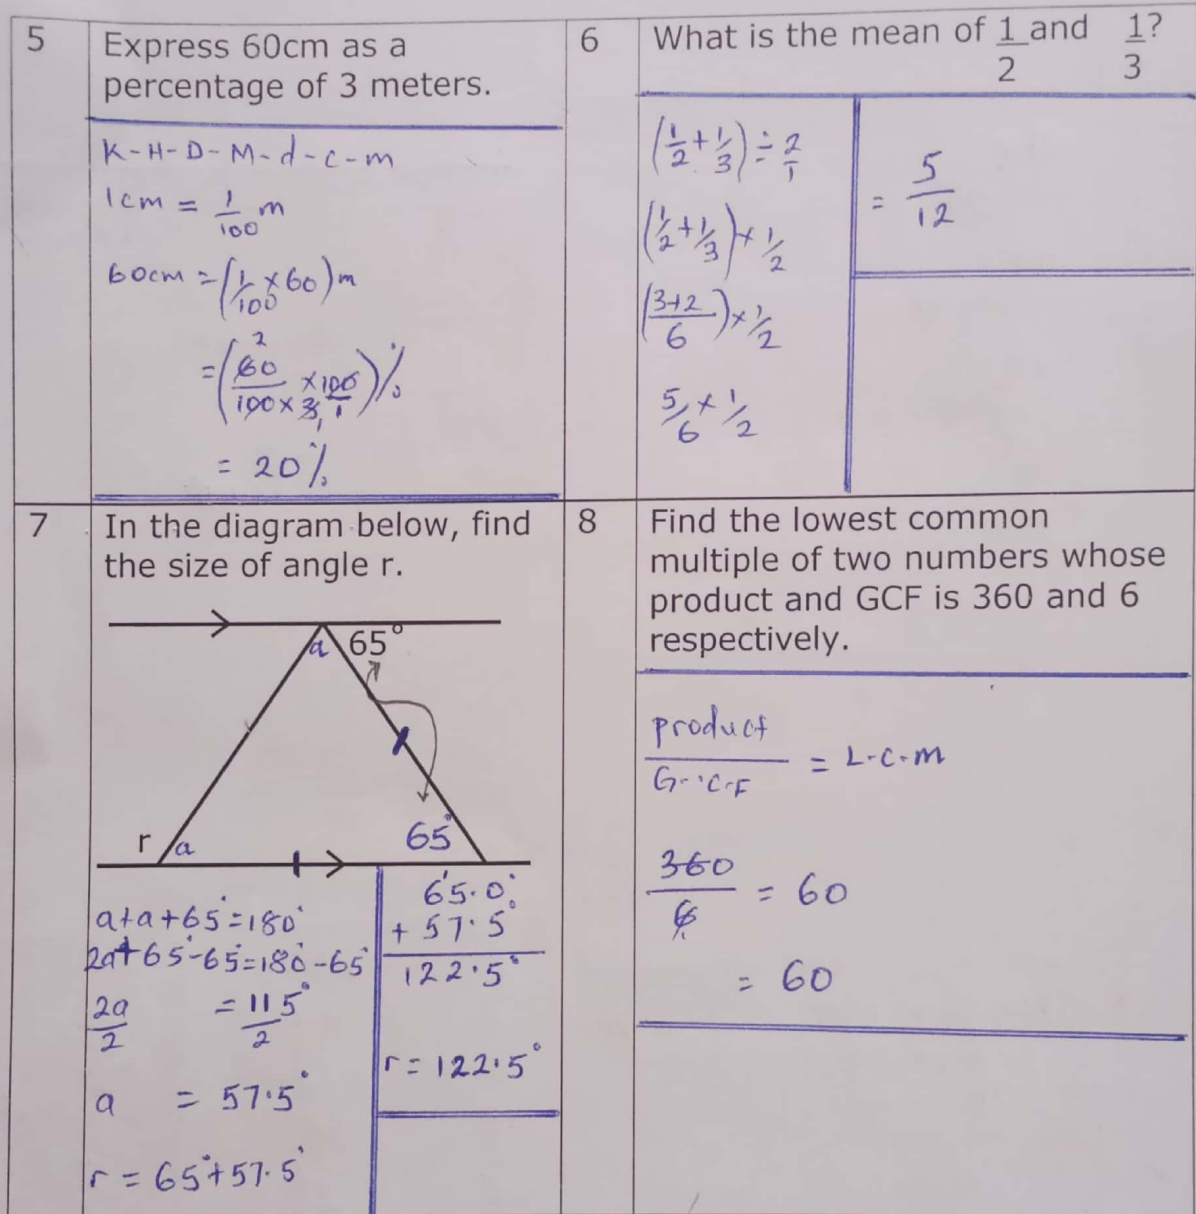 5
Express 60cm as a
percentage of 3 meters.
K-H-D-M-d-c-m
1cm = 1/100 m
60cm = (1/100 × 60) m
2
= (60/100×3 × 100/1) %
1
= 20%
6
What is the mean of 1/2 and 1/3?
(1/2 + 1/3) ÷ 2/1
(1/2 + 1/3) × 1/2
(3+2/6) × 1/2
5/6 × 1/2
= 5/12
7
In the diagram below, find
the size of angle r.
a 65°
r a 65°
a+a+65°=180°
2a+65°-65°=180°-65°
2a/2 = 115°/2
a = 57.5°
r = 65°+57.5°
65.0°
+ 57.5°
122.5°
r = 122.5°
8
Find the lowest common
multiple of two numbers whose
product and GCF is 360 and 6
respectively.
product/G.C.F = L.C.M
360/6 = 60
= 60